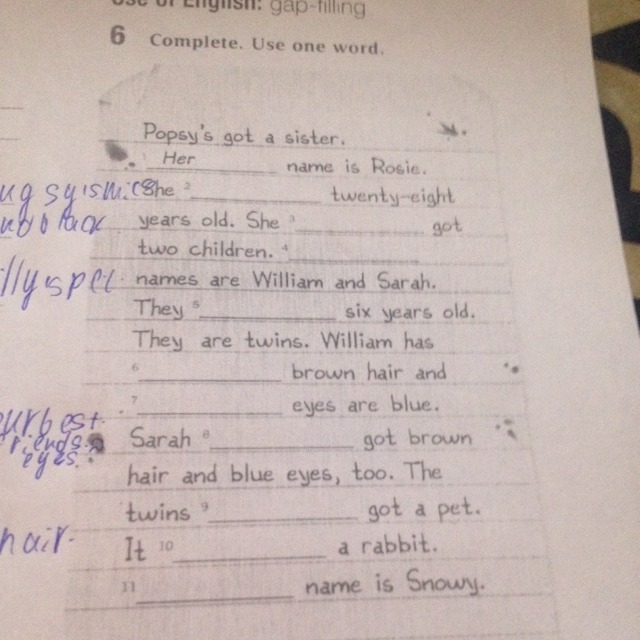 Use of English: gap-filling
6 Complete. Use one word.
Popsy's got a sister.
1 Her name is Rosie.
She 2 twenty-eight
years old. She 3 got
two children. 4
names are William and Sarah.
They 5 six years old.
They are twins. William has
6 brown hair and
7 eyes are blue.
Sarah 8 got brown
hair and blue eyes, too. The
twins 9 got a pet.
It 10 a rabbit.
11 name is Snowy.
eyes.
hair.